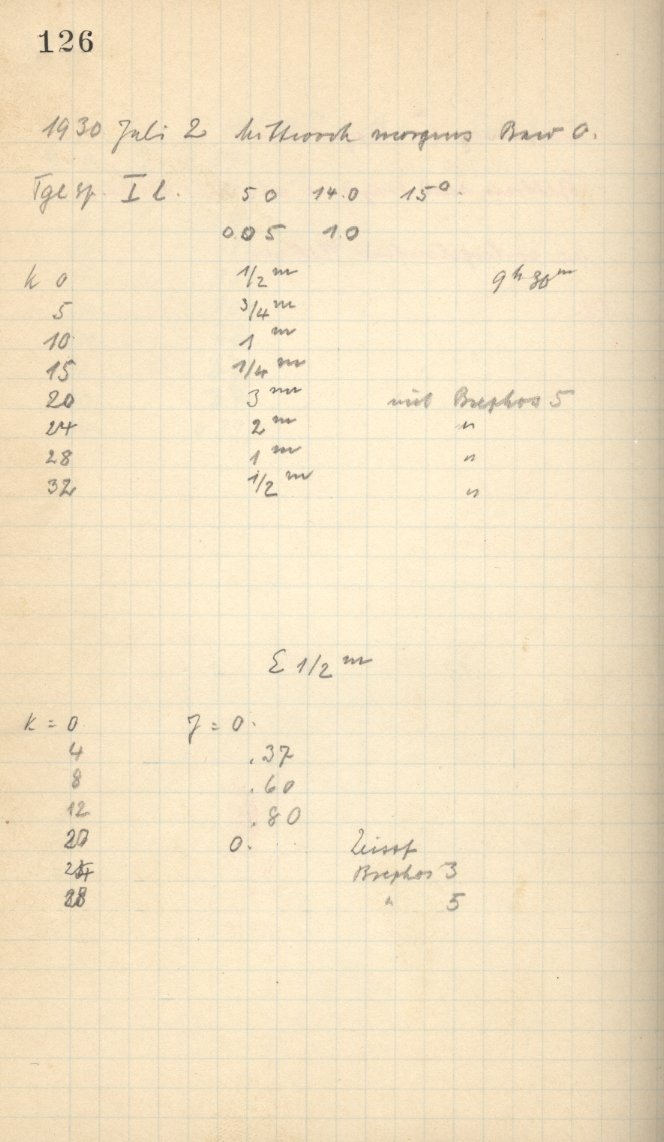 126
1930 Juli 2 Mittwoch morgens Baw 0.
Tglsp. I l. 50 14.0 15°.
0.05 1.0
k 0 1/2 m 9 h 30 m
5 3/4 m
10 1 m
15 1/4 m
20 3 m mit Brephos 5
24 2 m "
28 1 m "
32 1/2 m "
E 1/2 m
k = 0 J = 0.
4 .37
8 .60
12 .80
20 0. Zeiss
24 Brephos 3
28 " 5